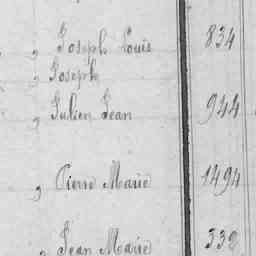 „ Joseph Louis 834
„ Joseph
„ Julien Jean 944
„ Pierre Marie 1494
„ Jean Marie 338